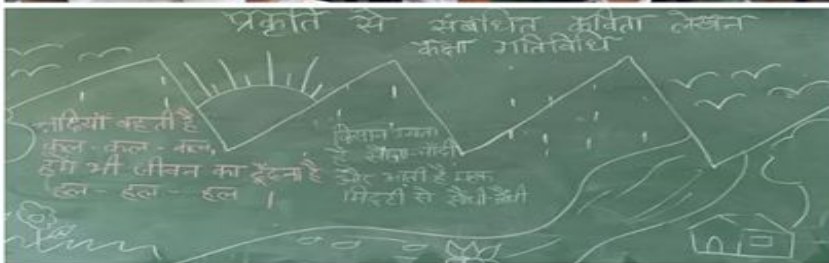 प्रकृति से संबंधित कविता लेखन
कक्षा गतिविधि
नदियाँ बहती है
कल - कल - कल,
हमे भी जीवन का ढूँढना है
हल - हल - हल ।
किसान उगाता
है सोना-चाँदी
और आती है महक
मिट्टी से सौंधी-सौंधी